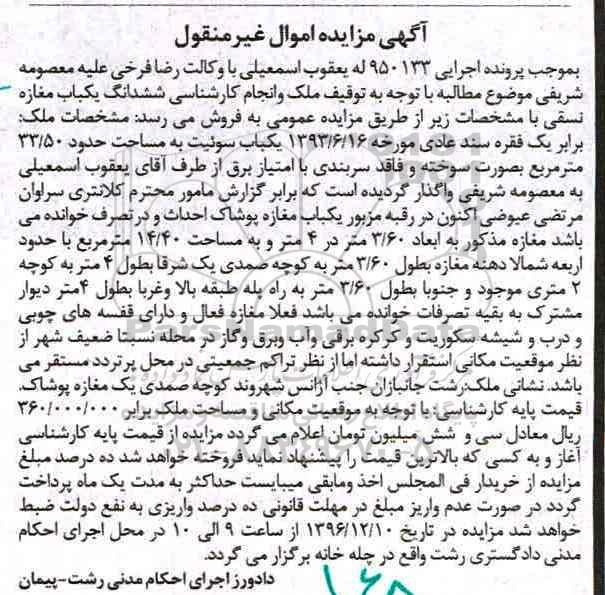 آگهی مزایده اموال غیر منقول
بموجب پرونده اجرایی ۹۵۰۱۳۳ له یعقوب اسمعیلی با وکالت رضا فرخی علیه معصومه
شریفی موضوع مطالبه با توجه به توقیف ملک وانجام کارشناسی ششدانگ یکباب مغازه
نسقی با مشخصات زیر از طریق مزایده عمومی به فروش می رسد: مشخصات ملک:
برابر یک فقره سند عادی مورخه ۱۳۹۳/۶/۱۶ یکباب سوئیت به مساحت حدود ۳۳/۵۰
مترمربع بصورت سوخته و فاقد سربندی با امتیاز برق از طرف آقای یعقوب اسمعیلی
به معصومه شریفی واگذار گردیده است که برابر گزارش مامور محترم کلانتری سراوان
مرتضی عیوضی اکنون در رقبه مزبور یکباب مغازه پوشاک احداث و در تصرف خوانده می
باشد مغازه مذکور به ابعاد ۳/۶۰ متر در ۴ متر و به مساحت ۱۴/۴۰ مترمربع با حدود
اربعه شمالا دهنه مغازه بطول ۳/۶۰ متر به کوچه صمدی یک شرقا بطول ۴ متر به کوچه
۲ متری موجود و جنوبا بطول ۳/۶۰ متر به راه پله طبقه بالا وغربا بطول ۴متر دیوار
مشترک به بقیه تصرفات خوانده می باشد فعلا مغازه فعال و دارای قفسه های چوبی
و درب و شیشه سکوریت و کرکره برقی واب وبرق وگاز در محله نسبتا ضعیف شهر از
نظر موقعیت مکانی استقرار داشته اما از نظر تراکم جمعیتی در محل پرتردد مستقر می
باشد. نشانی ملک:رشت جانبازان جنب آژانس شهروند کوچه صمدی یک مغازه پوشاک.
قیمت پایه کارشناسی: با توجه به موقعیت مکانی و مساحت ملک برابر ۳۶۰/۰۰۰/۰۰۰
ریال معادل سی و شش میلیون تومان اعلام می گردد مزایده از قیمت پایه کارشناسی
آغاز و به کسی که بالاترین قیمت را پیشنهاد نماید فروخته خواهد شد ده درصد مبلغ
مزایده از خریدار فی المجلس اخذ ومابقی میبایست حداکثر به مدت یک ماه پرداخت
گردد در صورت عدم واریز مبلغ در مهلت قانونی ده درصد واریزی به نفع دولت ضبط
خواهد شد مزایده در تاریخ ۱۳۹۶/۱۲/۱۰ از ساعت ۹ الی ۱۰ در محل اجرای احکام
مدنی دادگستری رشت واقع در چله خانه برگزار می گردد.
دادورز اجرای احکام مدنی رشت-پیمان